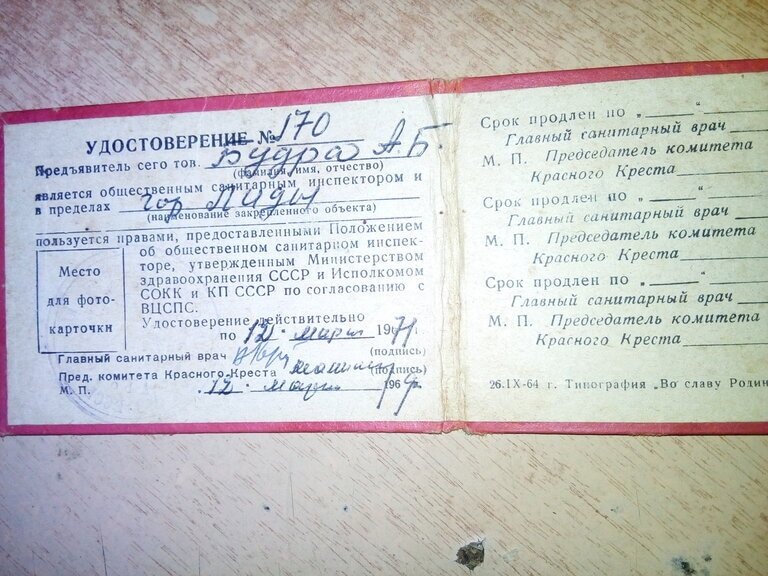 УДОСТОВЕРЕНИЕ № 170
Предъявитель сего тов. Будра А.Б.
(фамилия, имя, отчество)
является общественным санитарным инспектором и
в пределах гор Лиды
(наименование закрепленного объекта)
пользуется правами, предоставленными Положением
об общественном санитарном инспек-
торе, утвержденным Министерством
здравоохранения СССР и Исполкомом
СОКК и КП СССР по согласованию с
ВЦСПС.
Место
для фото-
карточки
Удостоверение действительно
по 12 марта 1971.
Главный санитарный врач
(подпись)
Пред. комитета Красного Креста
(подпись)
М. П. 12 марта 196
Срок продлен по „ “
Главный санитарный врач
М. П. Председатель комитета
Красного Креста
Срок продлен по „ “
Главный санитарный врач
М. П. Председатель комитета
Красного Креста
Срок продлен по „ “
Главный санитарный врач
М. П. Председатель комитета
Красного Креста
26.IX-64 г. Типография „Во славу Родин